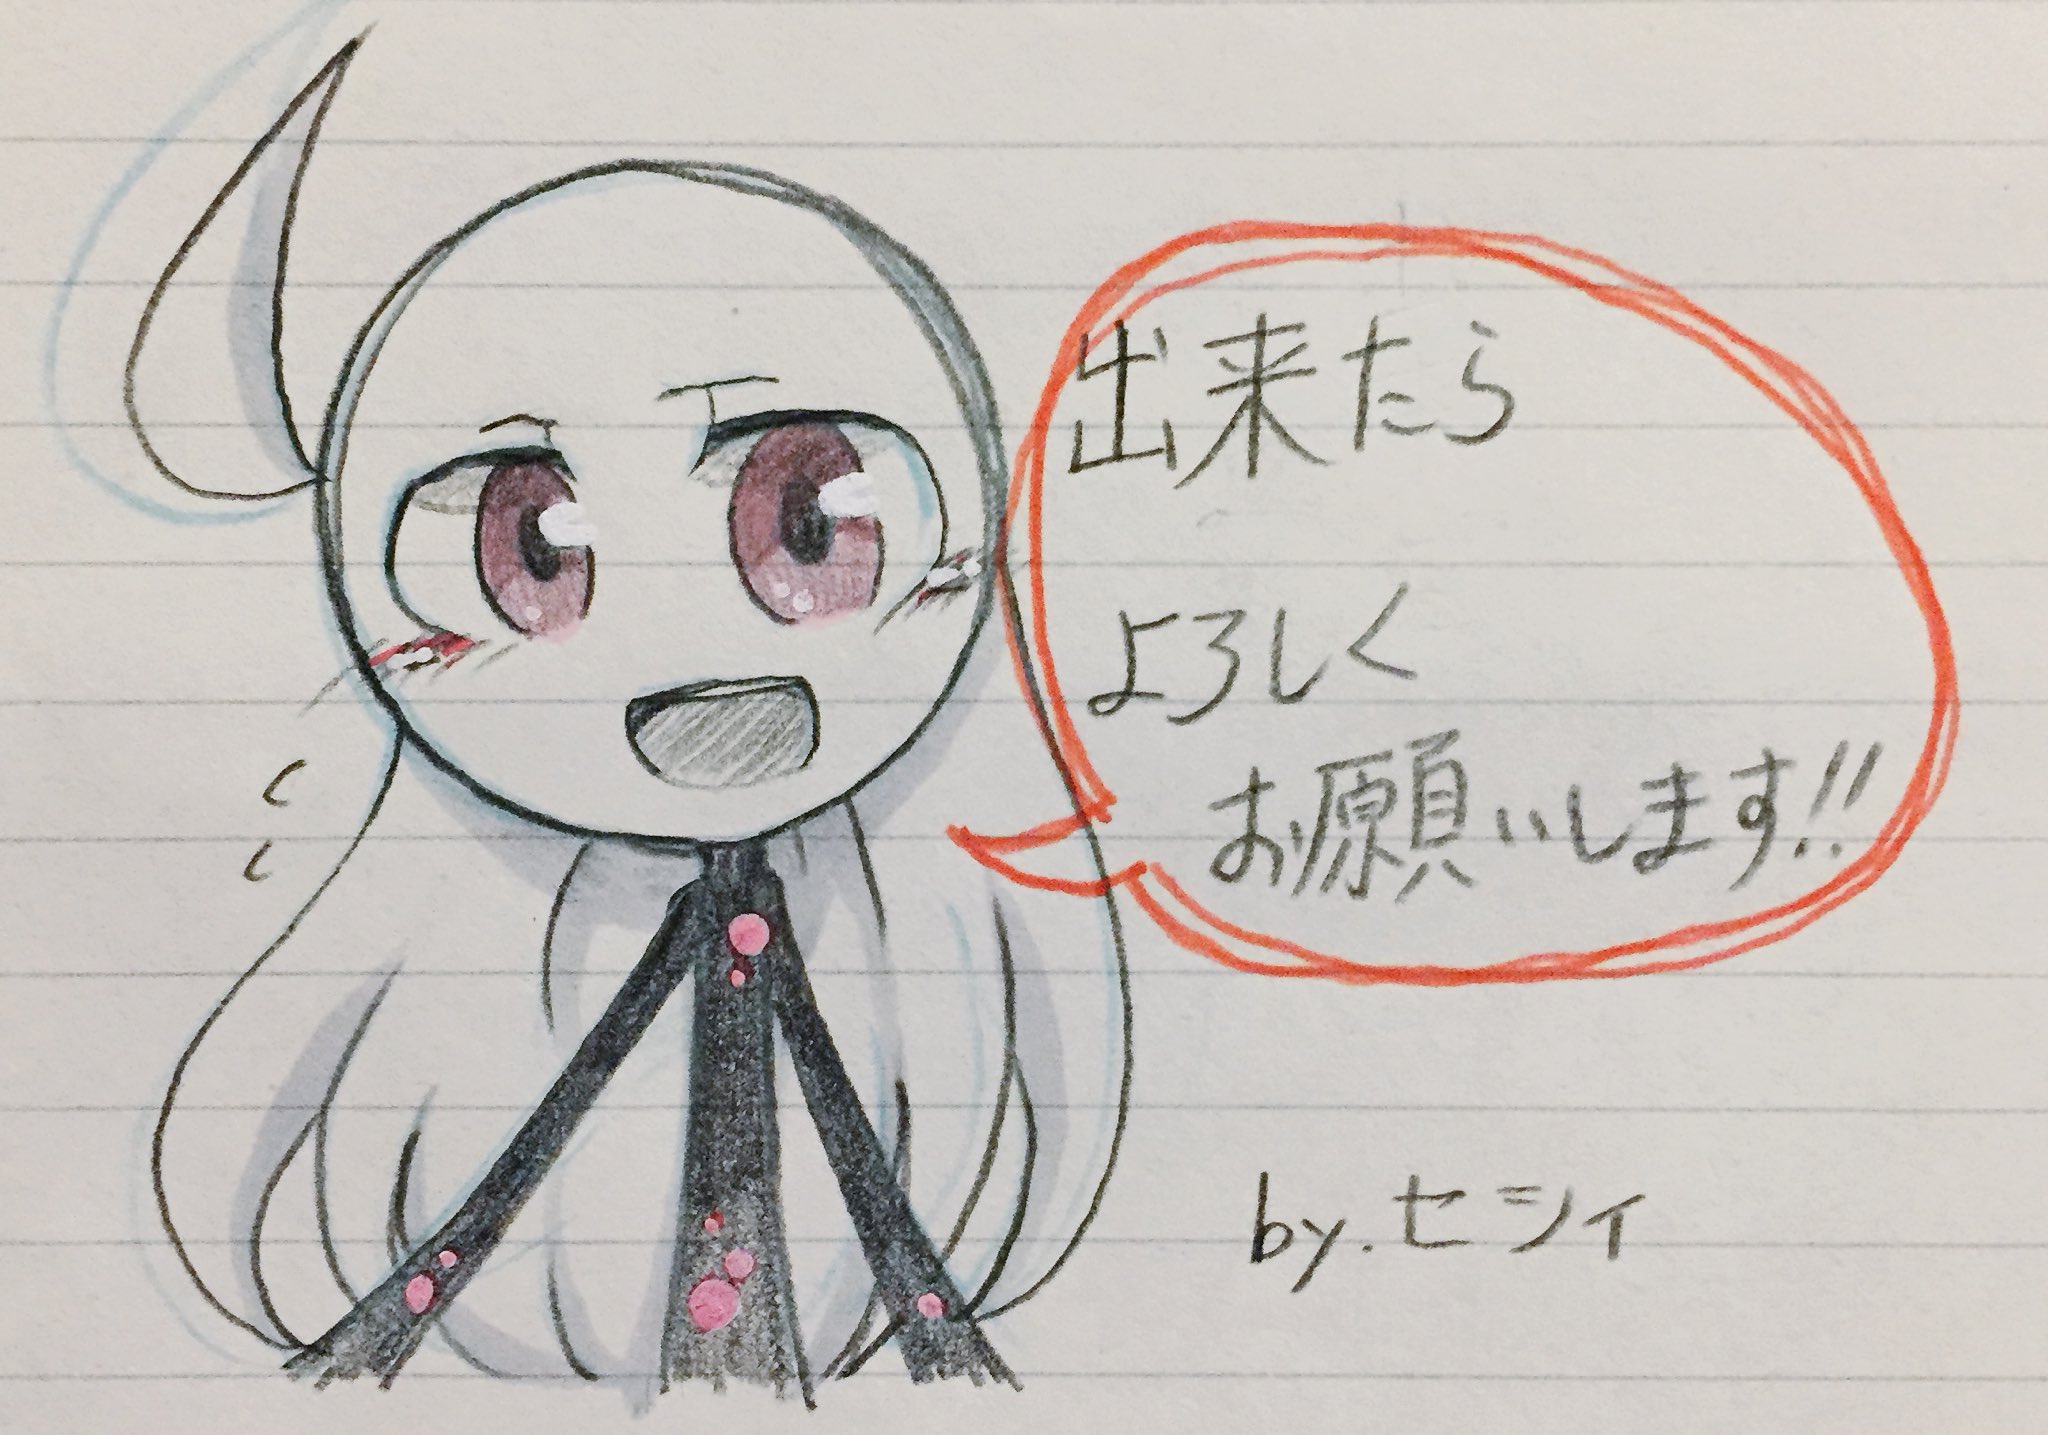 出来たら
よろしく
お願いします!!
by.セシィ